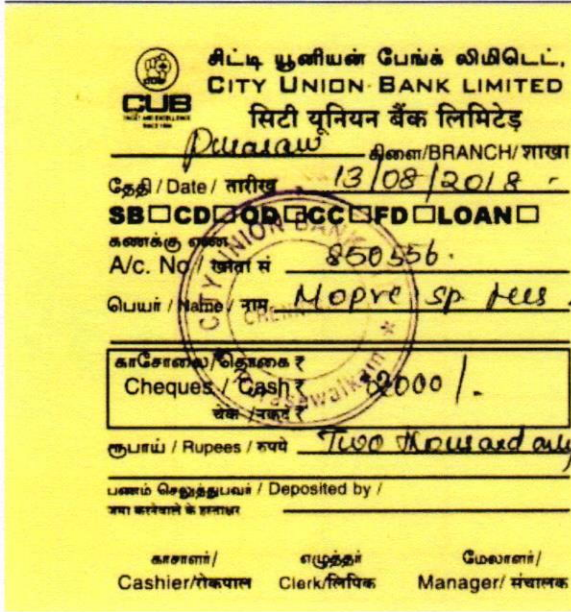 சிட்டி யூனியன் பேங்க் லிமிடெட்,
CITY UNION BANK LIMITED
सिटी यूनियन बैंक लिमिटेड
CUB
TRUST AND EXCELLENCE
SINCE 1904
கிளை/BRANCH/शाखा
தேதி / Date / तारीख 13/08/2018
SB□CD□OD□CC□FD□LOAN□
கணக்கு எண்
A/c. No / खाता सं 850556
பெயர் / Name / नाम Mopre sp
காசோலை/தொகை ₹
Cheques / Cash ₹ 2000/-
चेक /नकद ₹
ரூபாய் / Rupees / रुपये Two thousand only
பணம் செலுத்துபவர் / Deposited by /
जमा करनेवाले के हस्ताक्षर
காசாளர்/ எழுத்தர் மேலாளர்/
Cashier/रोकपाल Clerk/लिपिक Manager/संचालक
CITY UNION BANK
CHENNAI
Purasawalkam